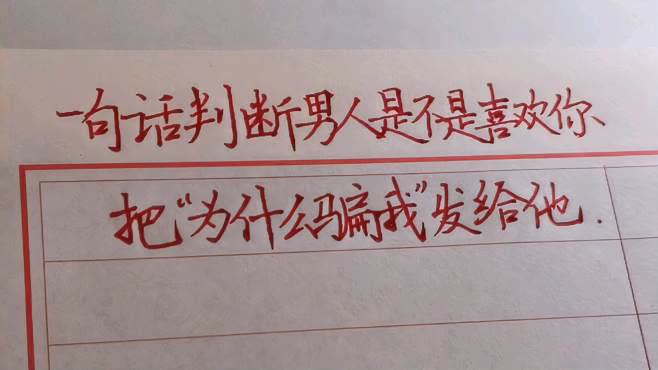 一句话判断男人是不是喜欢你、
把“为什么骗我”发给他.